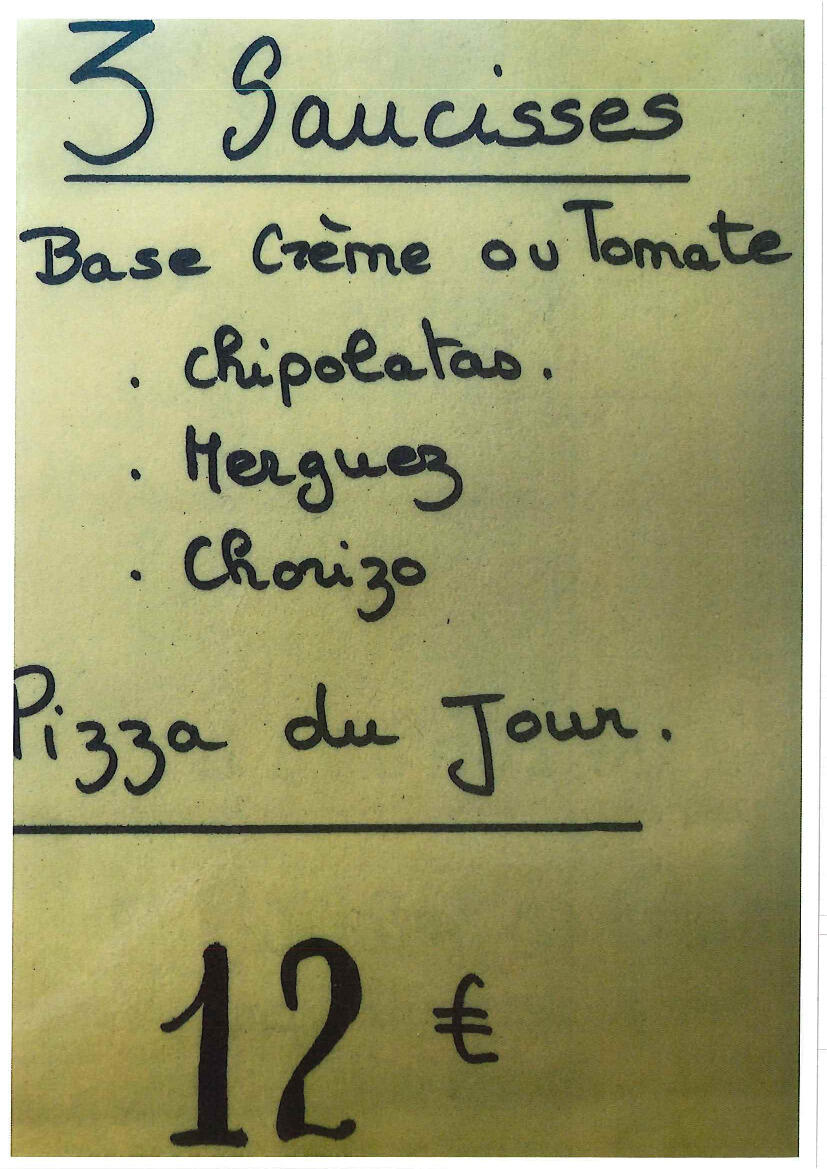 3 Saucisses
Base Crème ou Tomate
. Chipolatas.
. Merguez
. Chorizo
Pizza du Jour.
12 €